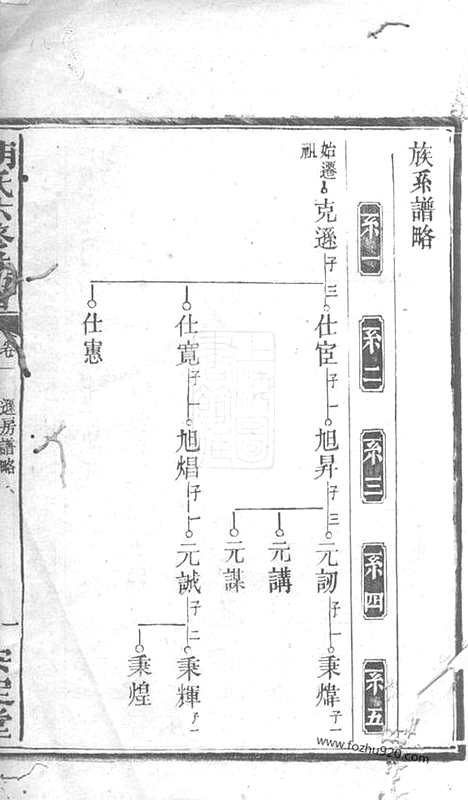 族系譜略
系一
系二
系三
系四
系五
始遷祖
克遜 子三
仕宦 子一
旭昇 子三
元訒 子一
秉煒 子一
元講
元謀
仕寬 子一
旭焻 子一
元誠 子二
秉輝 子一
秉煌
仕惠
氏六修
卷一
遜房譜略
一
堂
www.fozhu920.com